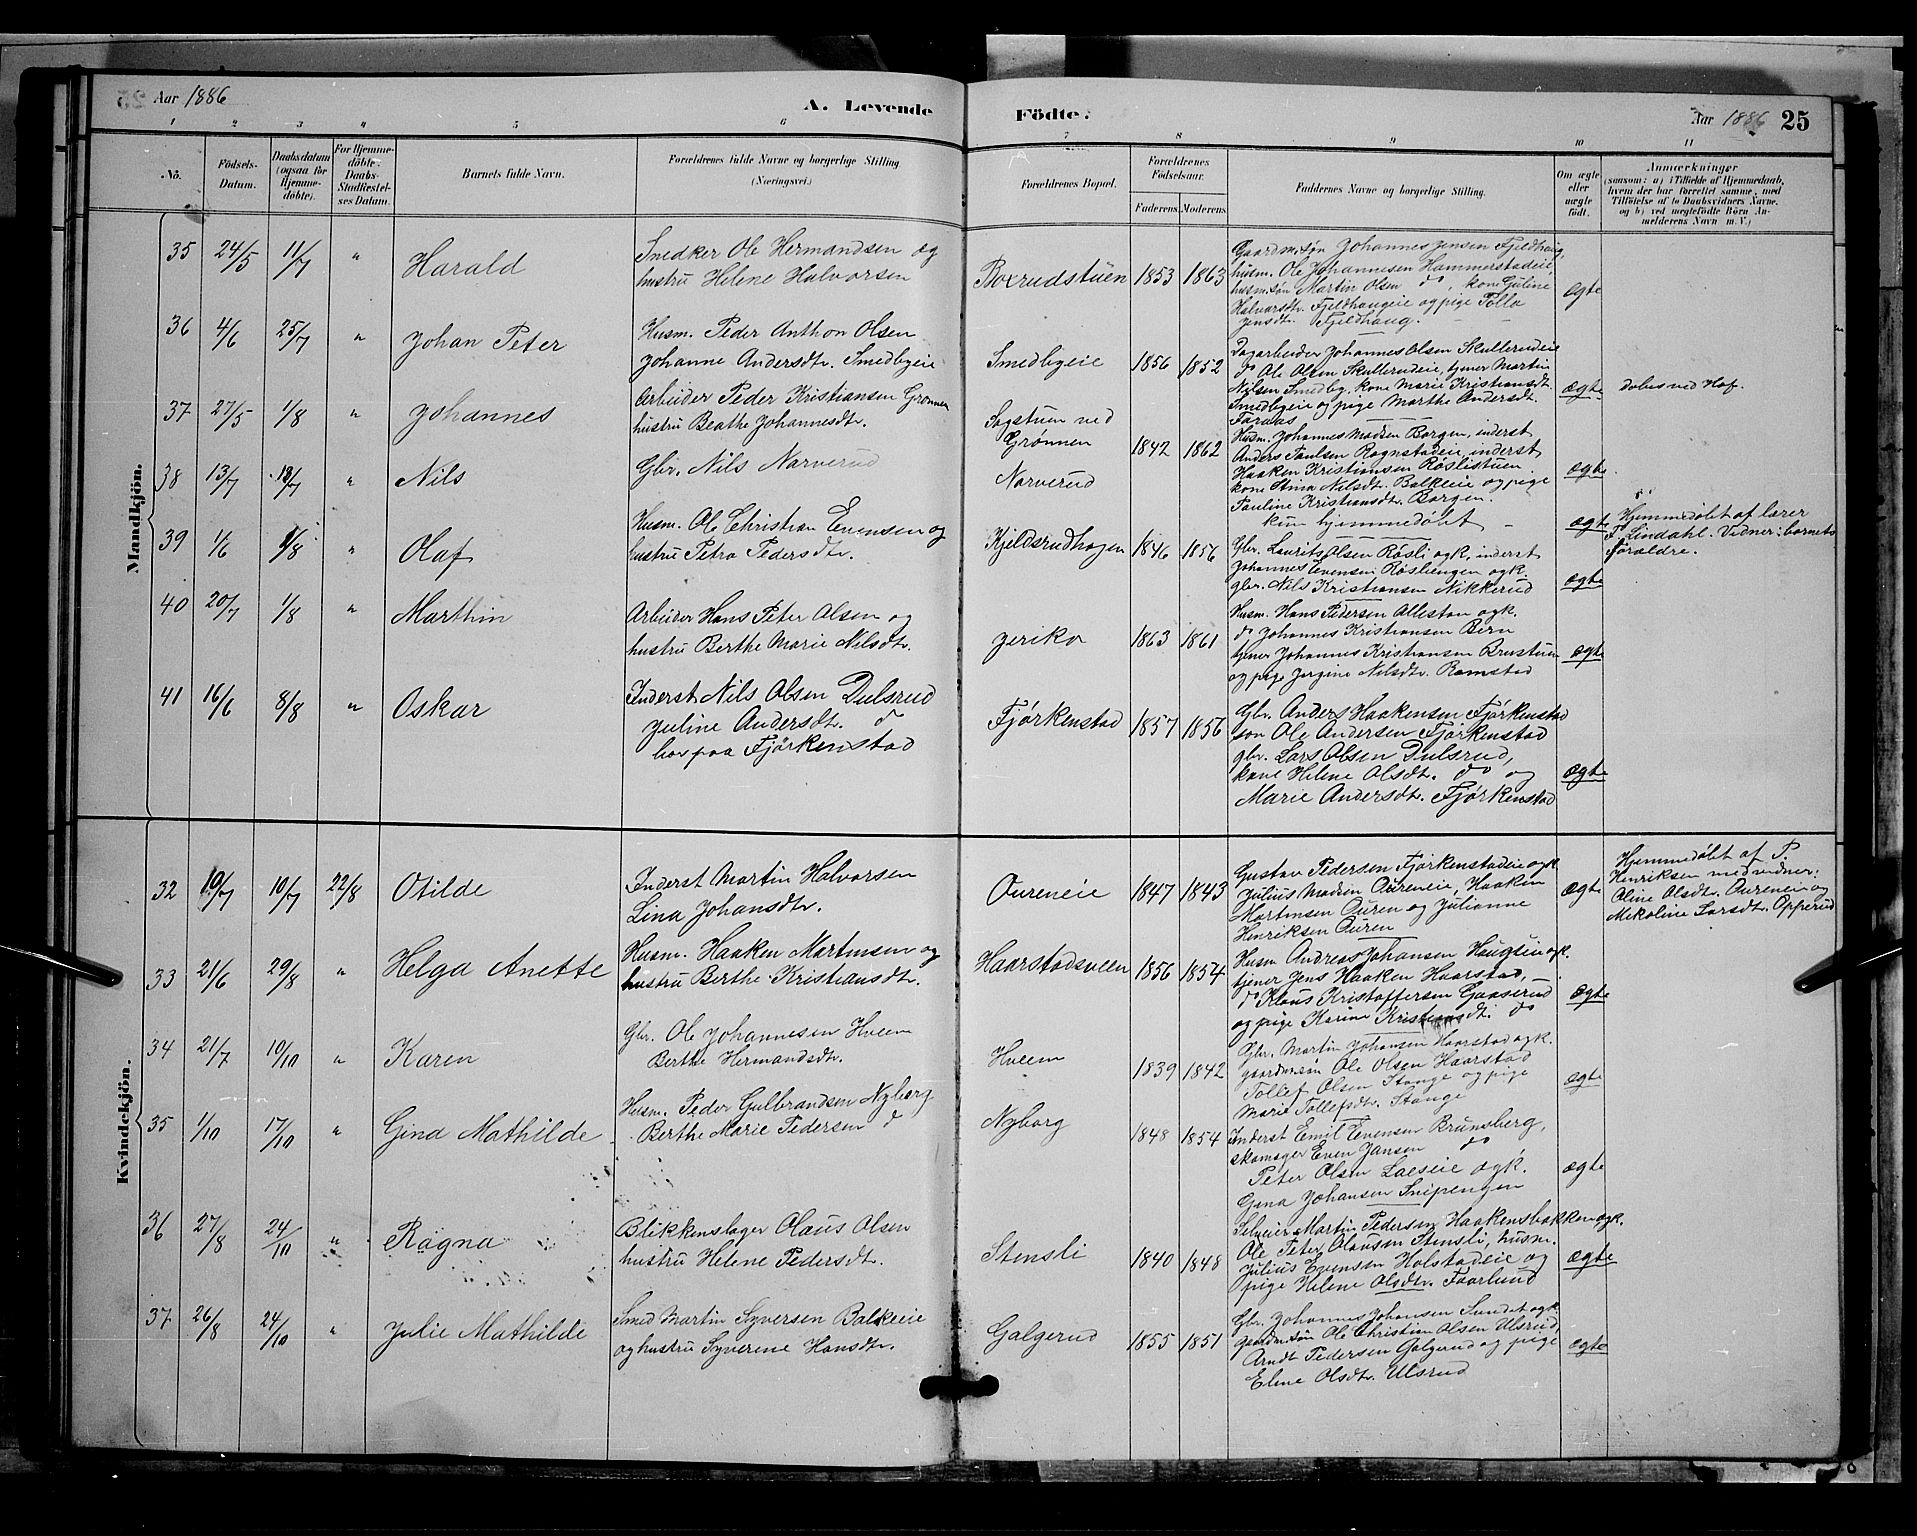 Aar 1886
A. Levende
Födte.
Aar 1886 25
1 2 3 4 5 6 7 8 9 10 11
No.
Födsels-Datum.
Daabsdatum (ogsaa for Hjemme-döbte).
For Hjemme-döbte: Daabs-Stadfæstelses Datum.
Barnets fulde Navn.
Forældrenes fulde Navne og borgerlige Stilling
(Næringsvei.)
Forældrenes Bopæl.
Forældrenes Födselsaar.
Faderens. Moderens.
Faddernes Navne og borgerlige Stilling.
Om ægte eller uægte födt.
Anmærkninger
(saasom: a) i Tilfælde af Hjemmedaab,
hvem der har forrettet samme, med
Tilföielse af to Daabsvidners Navne,
og b) ved uægtefödte Börn An-
melderens Navn m. V.)
Mandkjön.
35 24/5 11/7 " Harald
Snedker Ole Hermandsen og
hustru Helene Halvorsen
Boxrudstuen 1853 1863
Gaardm.søn Johannes Jensen Fjeldhaug,
husm. Ole Johannesen Hammerstadeie
husm.søn Martin Olsen do, kone Guline
Halvorsdtr. Fjeldhaugeie og pige Tolla
Jensdtr. Fjeldhaug.
ægte
36 4/6 25/7 " Johan Peter
Husm. Peder Anthon Olsen
Johanne Andersdtr. Smedbyeie
Smedbyeie 1856 1852
Dagarbeider Johannes Olsen Skullerudeie
do Ole Olsen Skullerudeie, tjener Martin
Nilsen Smedby, kone Marie Kristiansdt.
Smedbyeie og pige Marthe Andersdt.
ægte
døbes ved Hof.
37 27/5 1/8 " Johannes
Arbeider Peder Kristiansen Grønnen
hustru Beathe Johannesdtr.
Sagstuen ved
Grønnen 1842 1862
Husm. Johannes Madsen Borgen, inderst
Anders Paulsen Rognstadeie, inderst
Haaken Kristiansen Røslistuen
kone Stina Nilsdt. Balkeie og pige
Pauline Kristiansdt. Borgen.
ægte
38 13/7 13/7 " Nils
Gbr. Nils Narverud
Narverud
kun hjemmedøbt
ægte
Hjemmedøbt af lærer
Lindahl. Vidner: barnets
forældre.
39 1/6 1/8 " Olaf
Husm. Ole Christian Evensen og
hustru Petra Pedersdtr.
Kjeldsrudhagen 1846 1856
Gbr. Laurits Olsen Røsli og k, inderst
Johannes Evensen Røsliengen og k
gbr. Nils Kristiansen Nikkerud
ægte
40 20/7 1/8 " Marthin
Arbeider Hans Peter Olsen og
hustru Berthe Marie Nilsdt.
Jeriko 1863 1861
Husm. Hans Pedersen Allestan og k.
do Johannes Kristiansen Bern
tjener Johannes Kristiansen Brustuen
og pige Jørgine Nilsdt. Ramstad
ægte
41 16/6 8/8 " Oskar
Inderst Nils Olsen Dulsrud
Juline Andersdt. do
bor paa Fjørkenstad
Fjørkenstad 1857 1856
Gbr. Anders Haakensen Fjørkenstad
søn Ole Andersen Fjørkenstad
gbr. Lars Olsen Dulsrud,
kone Helene Olsdt. do og
Marie Andersdt. Fjørkenstad
ægte
Kvindekjön.
32 10/7 10/7 22/8 Otilde
Inderst Martin Halvorsen
Lina Johansdtr.
Oureneie 1847 1843
Gustav Pedersen Fjørkenstadeie og k
Julius Madsen Oureneie, Haaken
Martinsen Ouren og Julianne
Henriksen Ouren
ægte
Hjemmedøbt af P.
Henriksen med vidner:
Oline Olsdt. Oureneie og
Mikoline Larsdt. Opperud
33 21/6 29/8 " Helga Anette
Husm. Haaken Martinsen og
hustru Berthe Kristiansdt.
Haarstadsveen 1856 1854
Husm Andreas Johansen Haugtun og k.
tjener Jens Haaken Haarstad,
do Klaus Kristoffersen Gaaserud
og pige Karine Kristiansdt. do
ægte
34 21/7 10/10 " Karen
Gbr. Ole Johannesen Hveem
Berthe Hermandsdt.
Hveem 1839 1842
Gbr. Martin Johansen Haarstad og k.
gaardm.søn Ole Olsen Haarstad
Tollef Olsen Stange og pige
Marie Tollefsdt. Stange
ægte
35 1/10 17/10 " Gina Mathilde
Husm. Peder Gulbrandsen Nyborg
Berthe Marie Pedersen do
Nyborg 1848 1854
Inderst Emil Evensen Brunsberg,
skomager Even Jansen do
Peter Olsen Laeseie og k.
Gina Johansen Snipengen
ægte
36 27/8 24/10 " Ragna
Blikkenslager Olaus Olsen
hustru Helene Pedersdt.
Stensli 1840 1848
Selveier Martin Pedersen Haakensbakken og k.
Ole Peter Olausen Stensli, husm.
Julius Evensen Holstadeie og
pige Helene Olsdt. Faarlund
ægte
37 26/8 24/10 " Julie Mathilde
Smed Martin Syversen Balkeie
og hustru Syverine Hansdt.
Galgerud 1855 1851
Gbr. Johannes Johansen Sundet og k.
gaardm.søn Ole Christian Olsen Ulsrud,
Arndt Pedersen Galgerud og pige
Eline Olsdt. Ulsrud
ægte